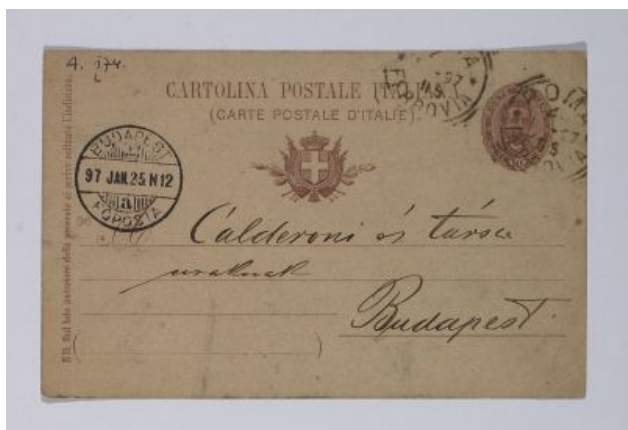 A. 174.
CARTOLINA POSTALE ITALIANA
(CARTE POSTALE D'ITALIE)
FERROVIA
ROMA
BUDAPEST
97 JAN. 25 N 12
a
FŐPOSTA
96
Calderoni és társa
uraknak
Budapest.
NB. Sul lato anteriore della presente si scrive soltanto l'indirizzo.